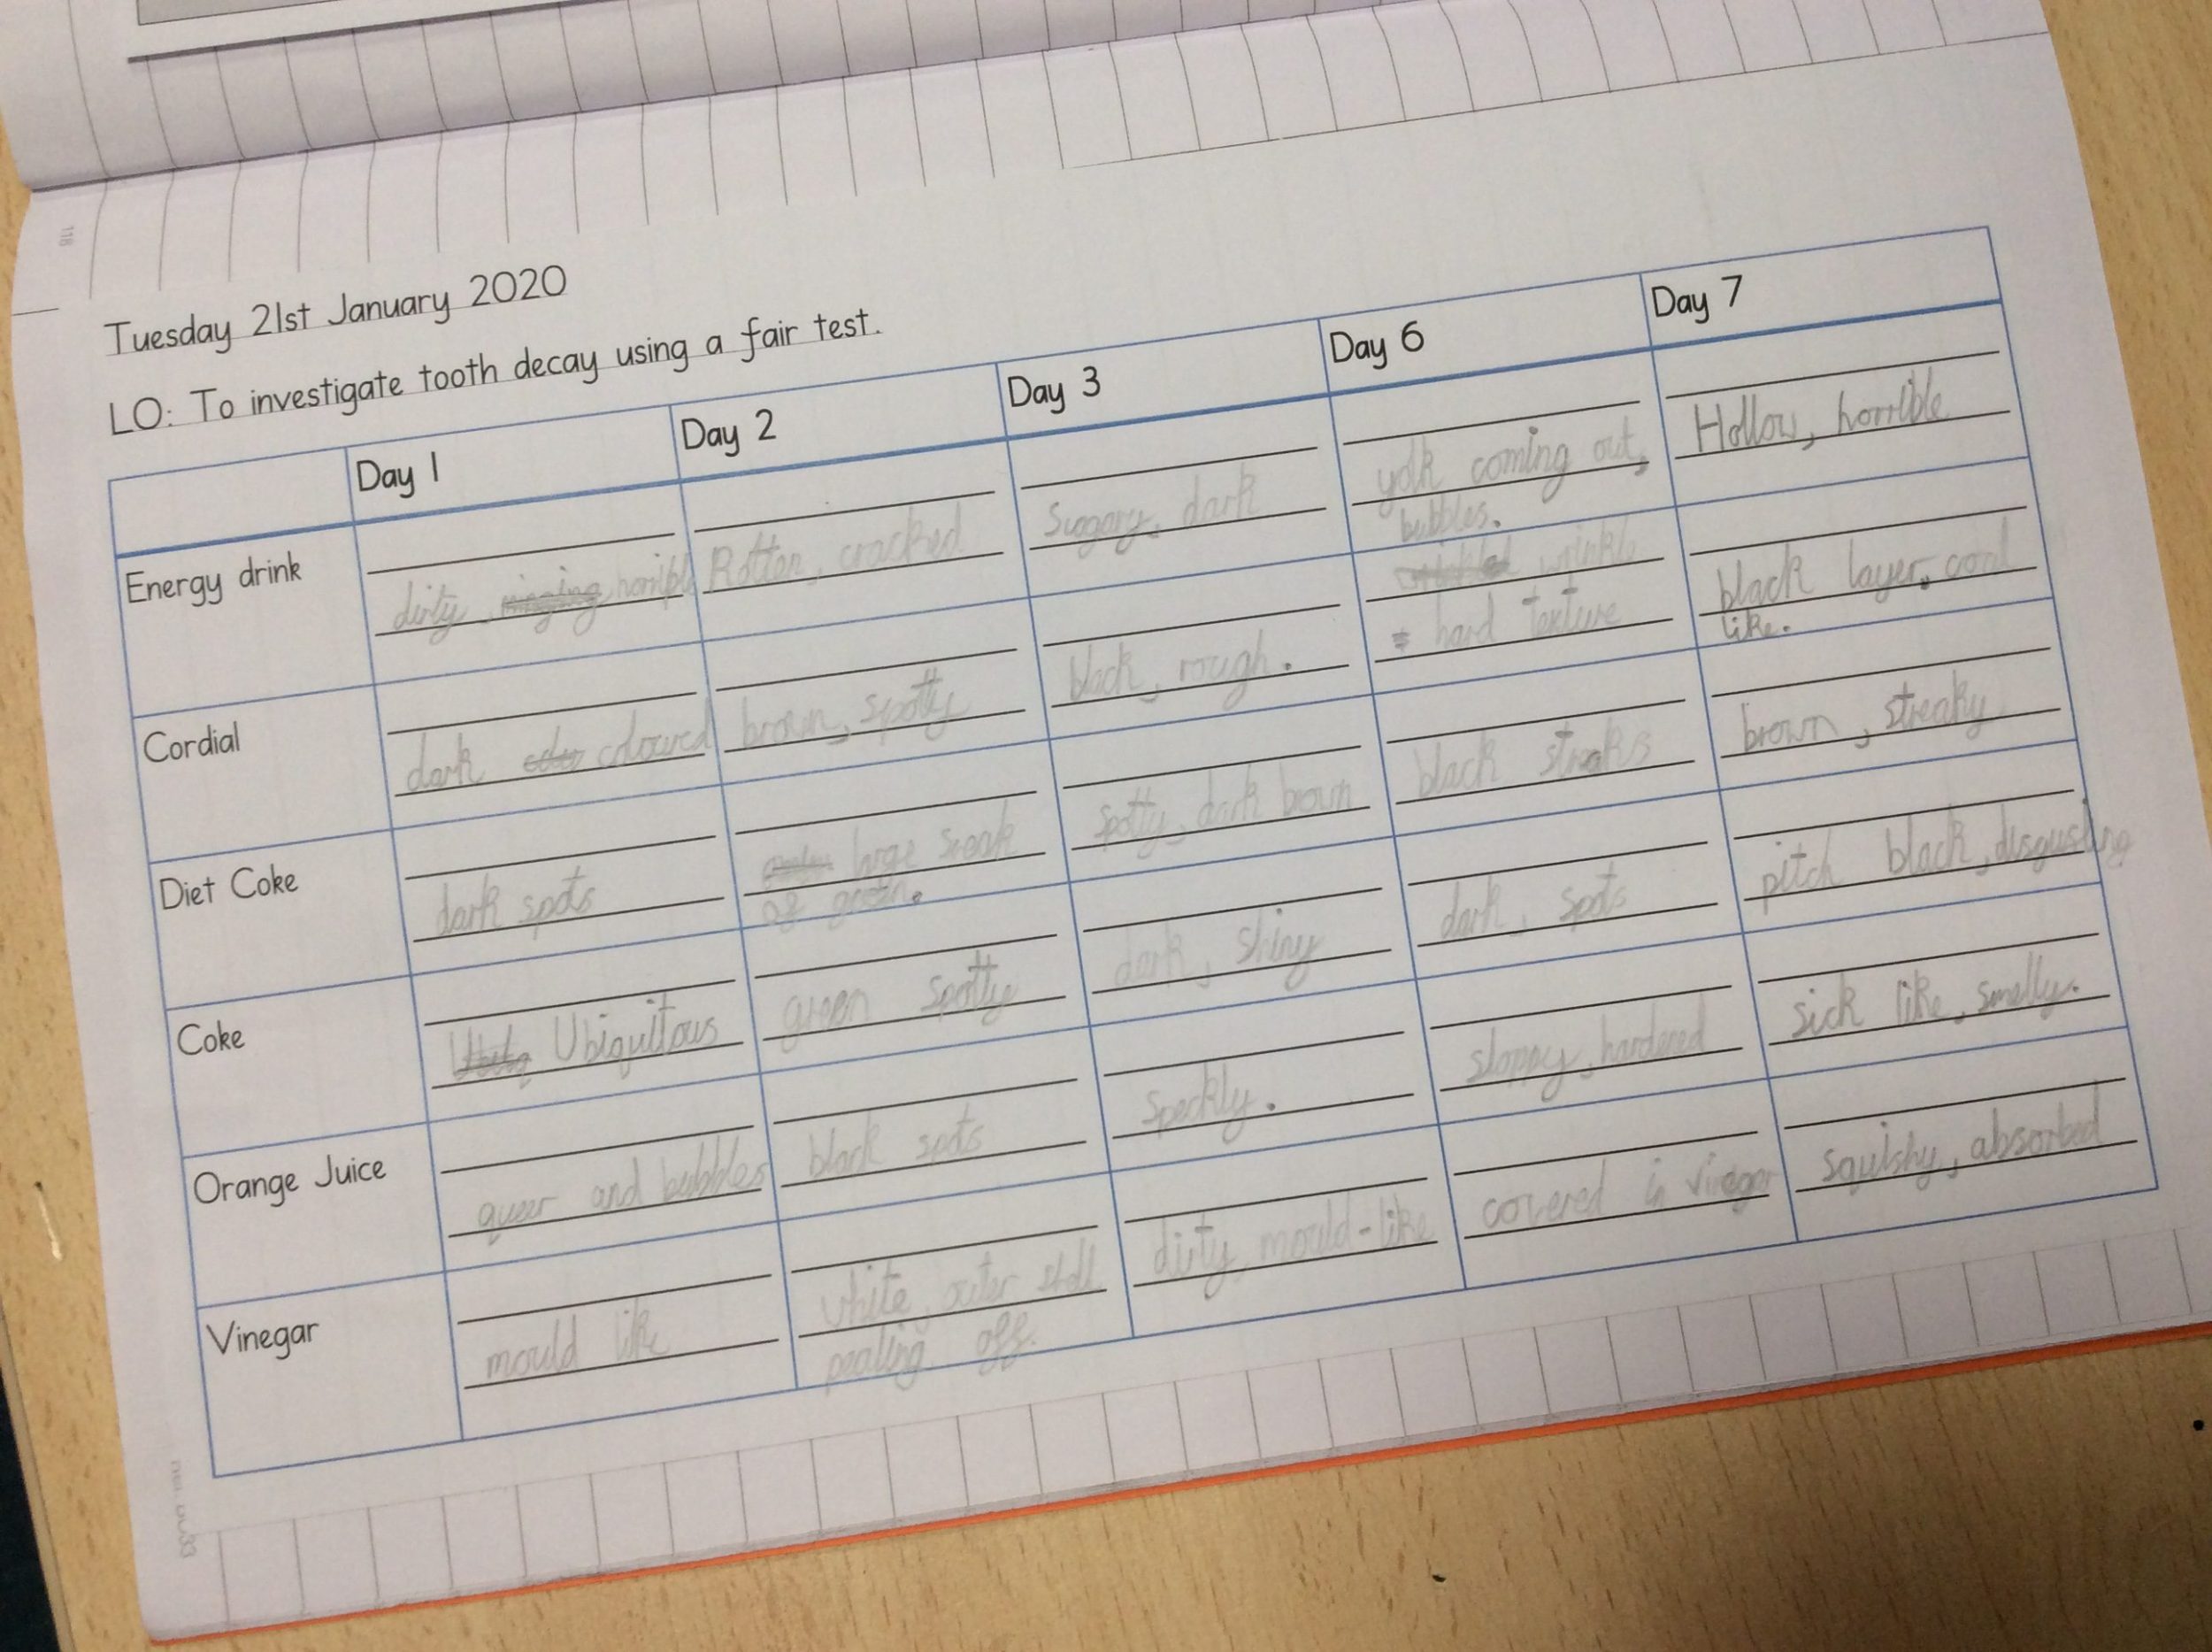 118
Tuesday 21st January 2020
LO: To investigate tooth decay using a fair test.
Day 1 Day 2 Day 3 Day 6 Day 7
Energy drink
dirty, minging horrible
Rotten, cracked
Suggary, dark
yolk coming out,
bubbles.
Hollow, horrible
Cordial
dark coloured
brown, spotty
black, rough.
wrinkly
hard texture
black layer, coal
like.
Diet Coke
dark spots
large sreak
of green.
spotty, dark brown
black streaks
brown, streaky
Coke
Ubiquitous
green spotty
dark, shiny
dark, spots
pitch black, disgusting
Orange Juice
queer and bubbles
black spots
Speckly.
sloppy, hardened
sick like, smelly.
Vinegar
mould like
white, outer shell
pealing off.
dirty, mould-like
covered in vinegar
squishy, absorbed